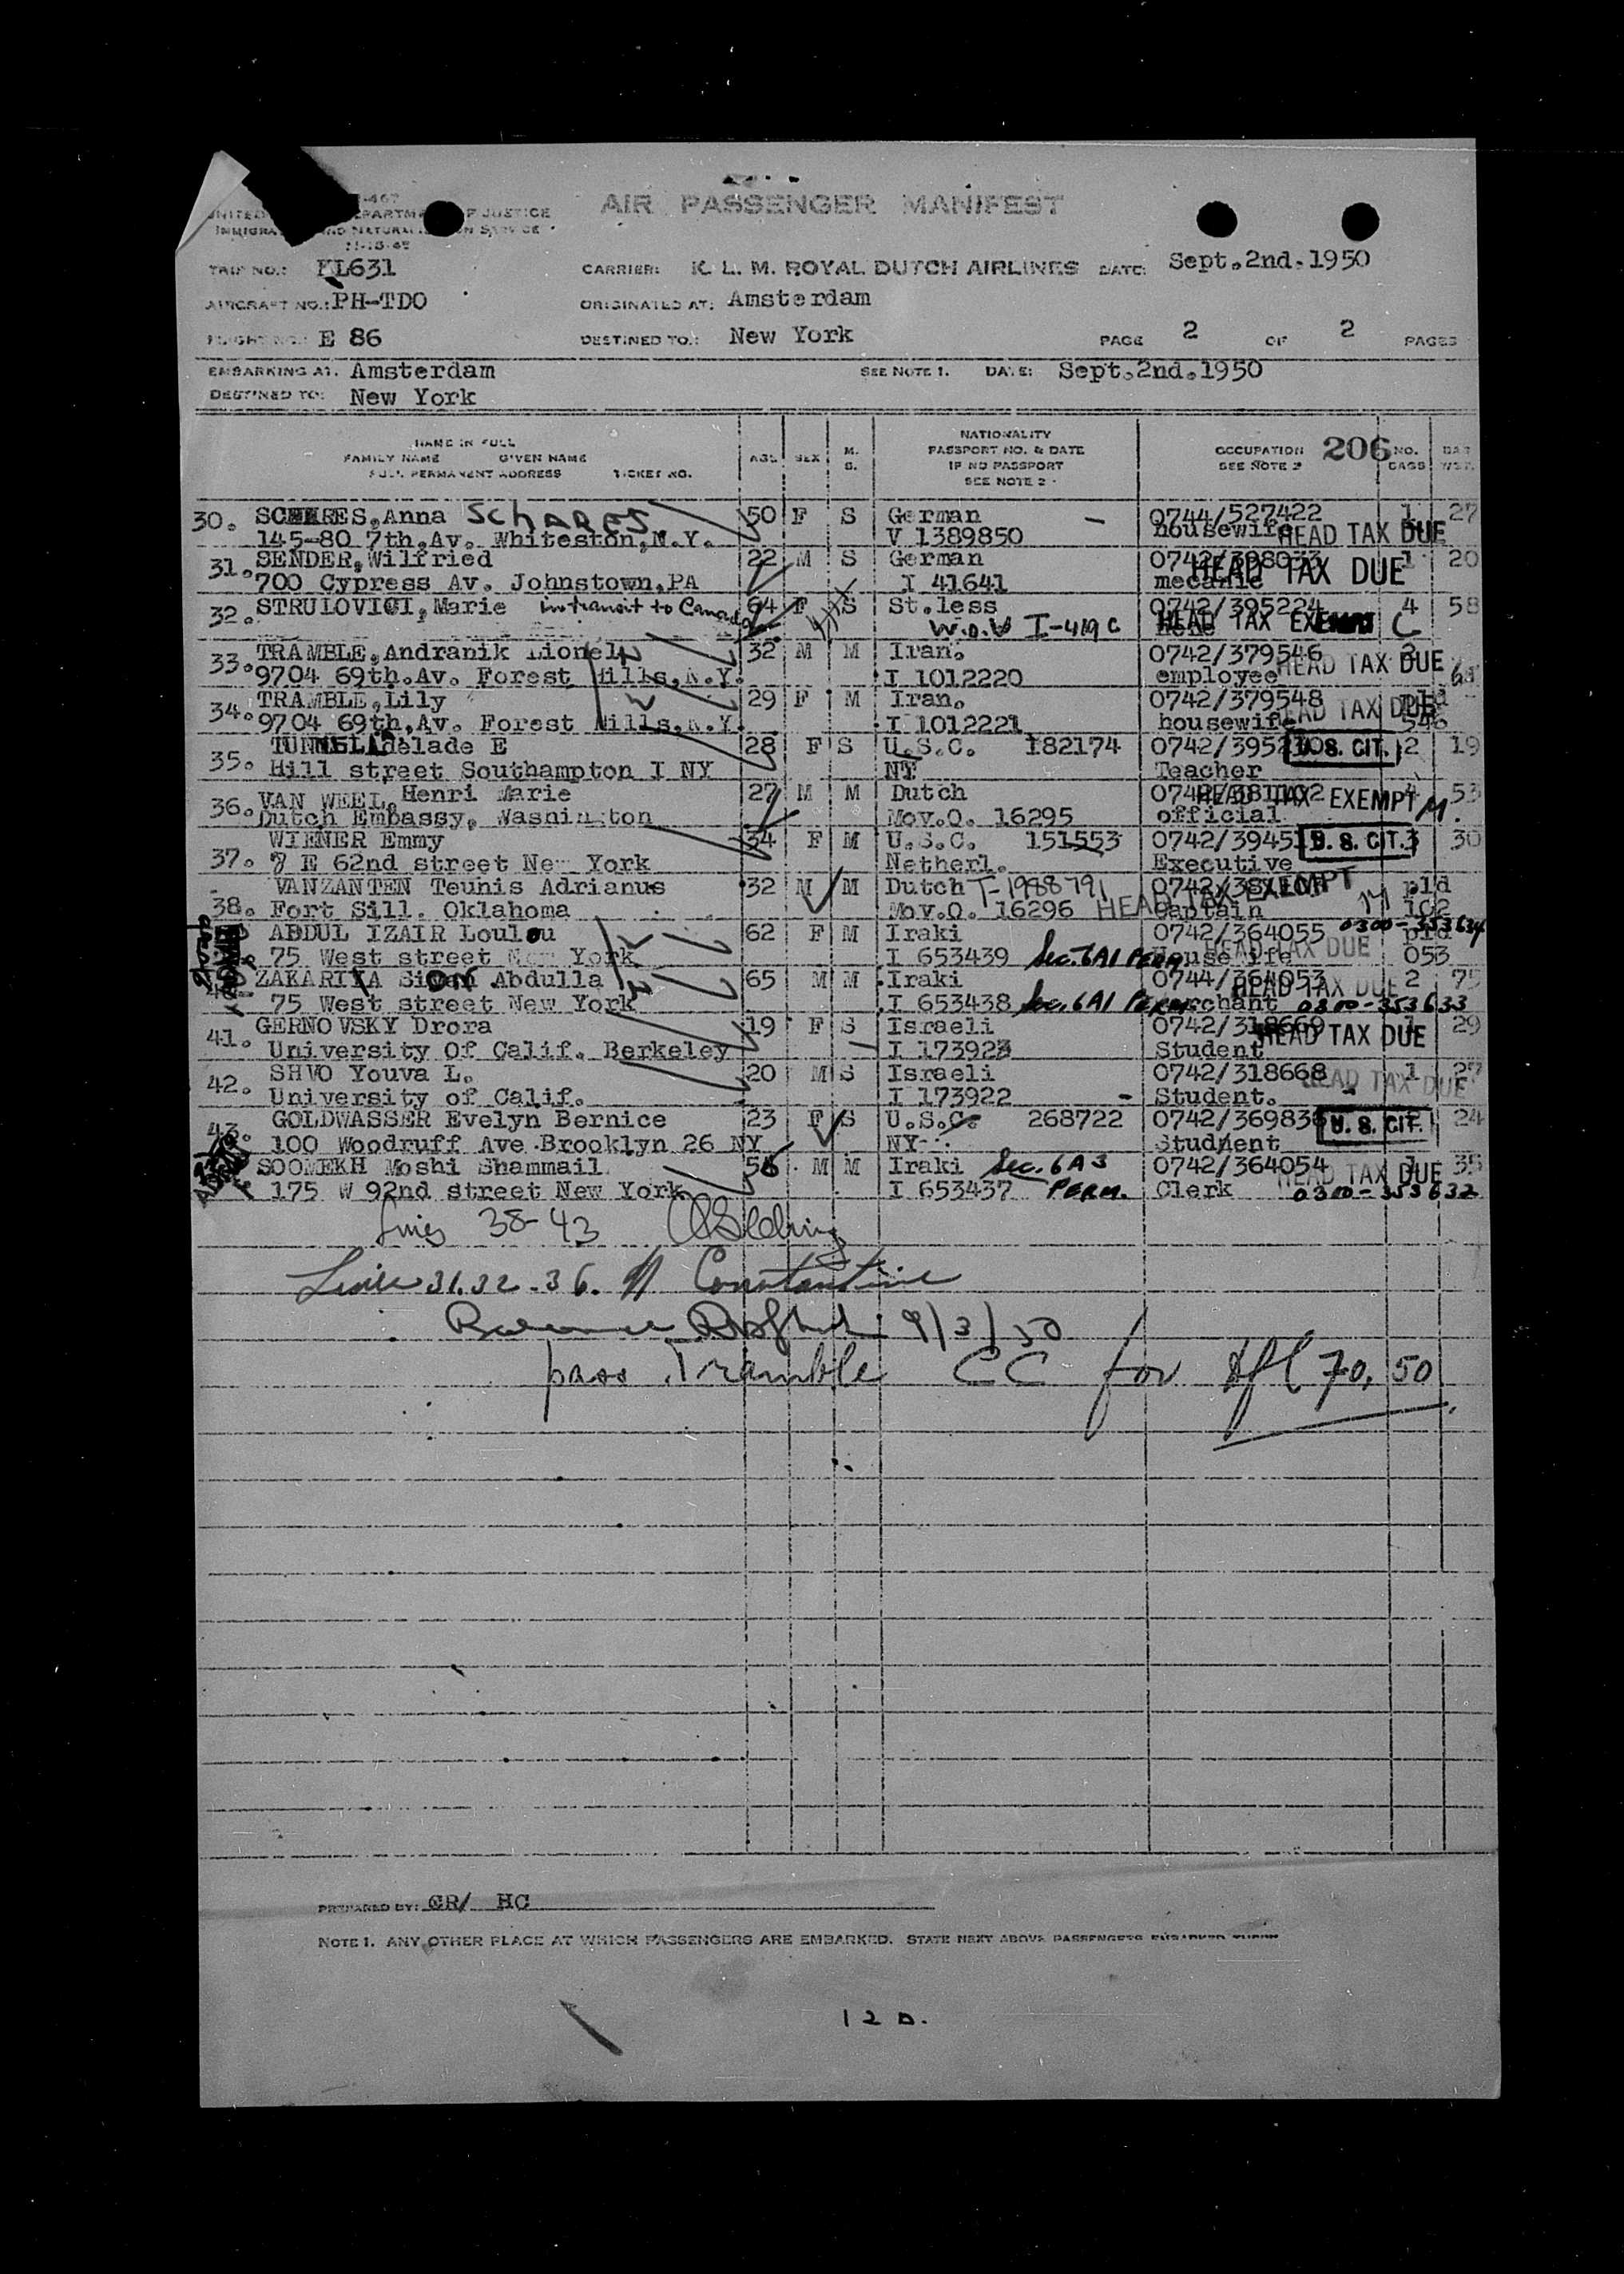 AIR PASSENGER MANIFEST
UNITED DEPARTMENT OF JUSTICE
IMMIGRATION AND NATURALIZATION SERVICE
TRIP NO.: KL631 CARRIER: K. L. M. ROYAL DUTCH AIRLINES DATE: Sept.2nd.1950
AIRCRAFT NO.: PH-TDO ORIGINATED AT: Amsterdam
FLIGHT NO.: E 86 DESTINED TO.: New York PAGE 2 OF 2 PAGES
EMBARKING AT. Amsterdam SEE NOTE 1. DATE: Sept.2nd.1950
DESTINED TO: New York
NAME IN FULL
FAMILY NAME GIVEN NAME
FULL PERMANENT ADDRESS TICKET NO.
AGE SEX M. S.
NATIONALITY
PASSPORT NO. & DATE
IF NO PASSPORT
SEE NOTE 2
OCCUPATION 206 NO.
SEE NOTE 2 BAGS
30. Anna SCHARES 50 F S German 0744/527422 1 27
145-80 7th.Av. Whiteston,N.Y. V 1389850 housewife HEAD TAX DUE
31. SENDER,Wilfried 22 M S German 0742/398033 1 20
700 Cypress Av. Johnstown,PA I 41641 mecanic HEAD TAX DUE
32. STRULOVICI,Marie in transit to Canada 64 F S St.less 0742/395224 4 58
W.O.V I-419 C HEAD TAX EXEMPT C
33. TRAMBLE,Andranik Lionel 32 M M Iran. 0742/379546
9704 69th.Av. Forest Hills,N.Y. I 1012220 employee HEAD TAX DUE
34. TRAMBLE,Lily 29 F M Iran. 0742/379548 pld
9704 69th,Av. Forest Hills,N.Y. I 1012221 housewife HEAD TAX DUE 546
35. Adelade E 28 F S U.S.C. 182174 U. S. CIT. 2 19
Hill street Southampton I NY NY Teacher
36. VAN WEEL, Henri Marie 27 M M Dutch HEAD TAX EXEMPT 53
Dutch Embassy, Washington Mov.O. 16295 official M.
37. WIENER Emmy 34 F M U.S.C. 151553 U. S. CIT. 3 30
7 E 62nd street New York Netherl. Executive
38. VANZANTEN Teunis Adrianus 32 M M Dutch T-1988791 pld
Fort Sill. Oklahoma Mov.O. 16296 HEAD TAX EXEMPT Captain M 102
ABDUL IZAIR Loulou 62 F M Iraki 0742/364055 0300-353634 pld
75 West street New York I 653439 Sec. 6A1 PERM House ife HEAD TAX DUE 053
ZAKARIYA Abdulla 65 M M Iraki 0744/364053 2 75
75 West street New York I 653438 Sec. 6A1 PERM Merchant HEAD TAX DUE 0300-353633
41. GERNOVSKY Drora 19 F S Israeli 0742/318669 1 29
University Of Calif. Berkeley I 173923 Student HEAD TAX DUE
42. SHVO Youva L. 20 M S Israeli 0742/318668 1 27
University of Calif. I 173922 - Student. HEAD TAX DUE
43. GOLDWASSER Evelyn Bernice 23 F S U.S.C. 268722 U. S. CIT. 24
100 Woodruff Ave.Brooklyn 26 NY NY Student
SOOMEKH Moshi Shammail 56 M M Iraki Sec. 6A3 0742/364054 1 35
175 W 92nd street New York I 653437 PERM. Clerk HEAD TAX DUE 0300-353632
Lines 38-43
Line 31.32.36. Constantine
9/3/50
pass Tramble CC for Hfl 70,50
PREPARED BY: GR/ HC
NOTE 1. ANY OTHER PLACE AT WHICH PASSENGERS ARE EMBARKED. STATE NEXT ABOVE PASSENGERS EMBARKED
12 D.